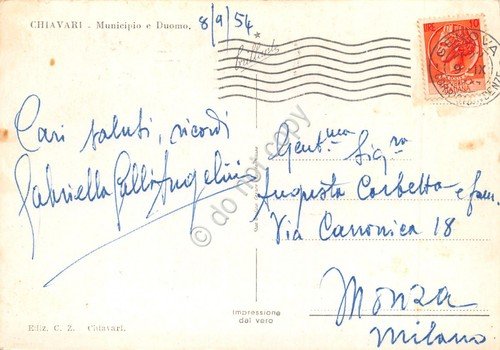 CHIAVARI - Municipio e Duomo.
8/9/54
Cari saluti, ricordi
Gabriella Galli Angelini
Gent.ma Sig.ra
Augusta Corbetta e fam.
Via Canonica 18
Monza
Milano
Impressione
dal vero
Ediz. C. Z. Chiavari.
do not copy